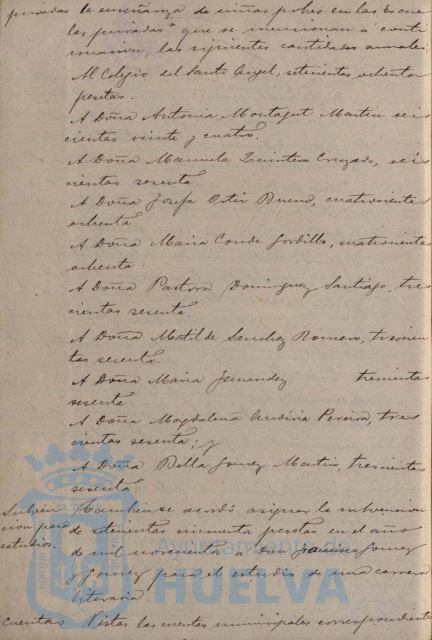 privadas la enseñanza de niñas pobres en las Escue
las privadas que se mencionan a conti
nuación, las siguientes cantidades anuales,
Al Colegio del Santo Angel, setecientas ochenta
pesetas.
A Doña Antonia Montagut Martin seis
cientas veinte y cuatro.
A Doña Manuela Quintero Cruzado, seis
cientas sesenta
A Doña Josefa Ortiz Bueno, cuatrocientas
ochenta
A Doña Maria Conde Gordillo, cuatrocientas
ochenta.
A Doña Pastora Dominguez Santiago, tres
cientas sesenta
A Doña Matilde Sanchez Romero, trescien
tas sesenta.
A Doña Maria Fernandez trescientas
sesenta.
A Doña Magdalena Pereira, tres
cientas sesenta; y
A Doña Gomez Martin, trescientas
sesenta.
Subven
cion para
estudio.
Igualmente acordó asignar la subvencion
de setecientas cincuenta pesetas en el año
de mil novecientos a don Francisco Gomez
y Gomez para el estudio de una carrera
literaria.
Cuentas Vistas las cuentas municipales correspondientes
Ayuntamiento de
HUELVA